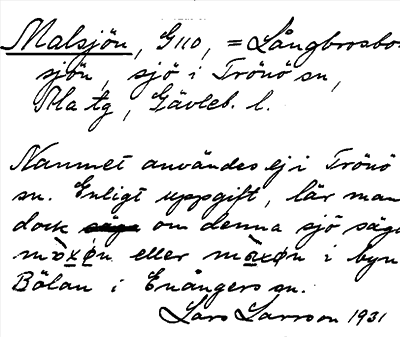 Malsjön, G110, = Långbrosbo-
sjön, sjö i Trönö sn,
Ala tg, Gävleb. l.
Namnet användes ej i Trönö
sn. Enligt uppgift, lär man
dock om denna sjö säga
eller i byn
Bölan i Enångers sn.
Lars Larsson 1931